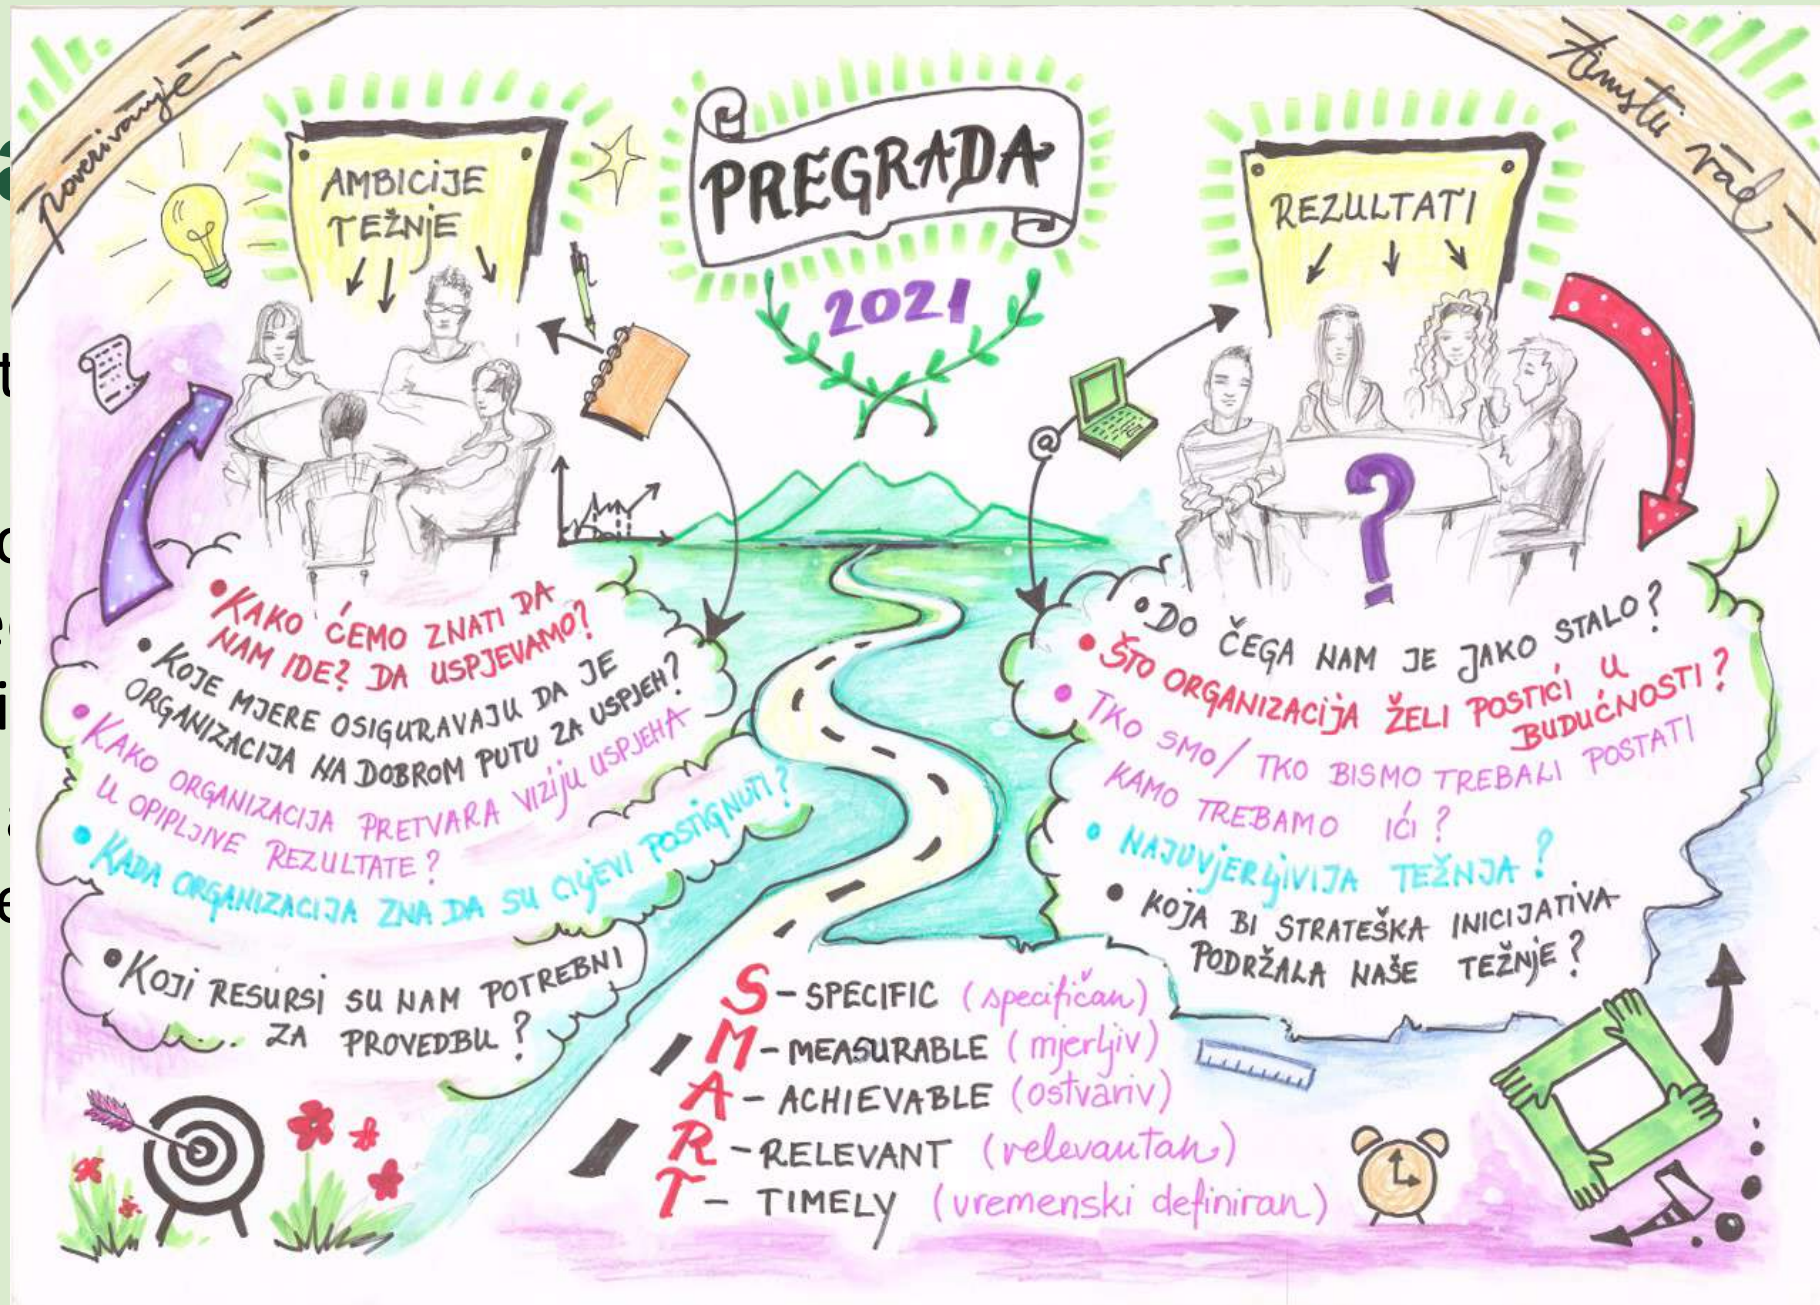 povezivanje
timski rad
PREGRADA
2021
AMBICIJE
TEŽNJE
REZULTATI
@
?
• KAKO ĆEMO ZNATI DA
NAM IDE? DA USPJEVAMO?
• KOJE MJERE OSIGURAVAJU DA JE
ORGANIZACIJA NA DOBROM PUTU ZA USPJEH?
• KAKO ORGANIZACIJA PRETVARA VIZIJU USPJEHA
U OPIPLJIVE REZULTATE?
• KADA ORGANIZACIJA ZNA DA SU CILJEVI POSTIGNUTI?
• KOJI RESURSI SU NAM POTREBNI
ZA PROVEDBU?
• DO ČEGA NAM JE JAKO STALO?
• ŠTO ORGANIZACIJA ŽELI POSTIĆI U
BUDUĆNOSTI?
• TKO SMO/ TKO BISMO TREBALI POSTATI
KAMO TREBAMO IĆI?
• NAJUVJERLJIVIJA TEŽNJA?
• KOJA BI STRATEŠKA INICIJATIVA
PODRŽALA NAŠE TEŽNJE?
S - SPECIFIC (specifičan)
M - MEASURABLE (mjerljiv)
A - ACHIEVABLE (ostvariv)
R - RELEVANT (relevantan)
T - TIMELY (vremenski definiran)